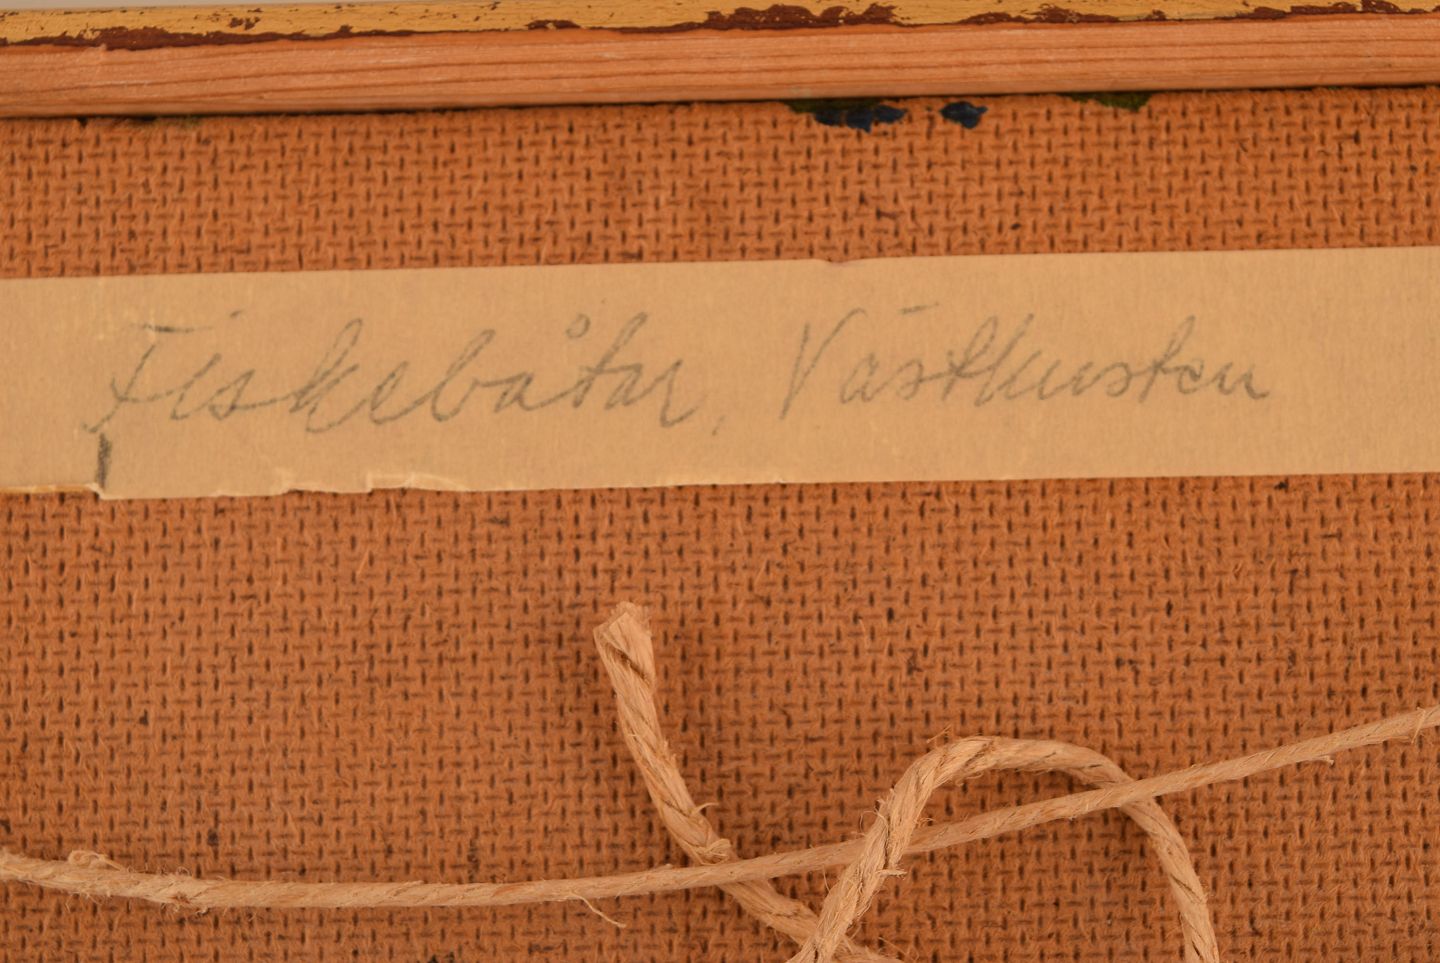 Fiskebåtar, Västkusten